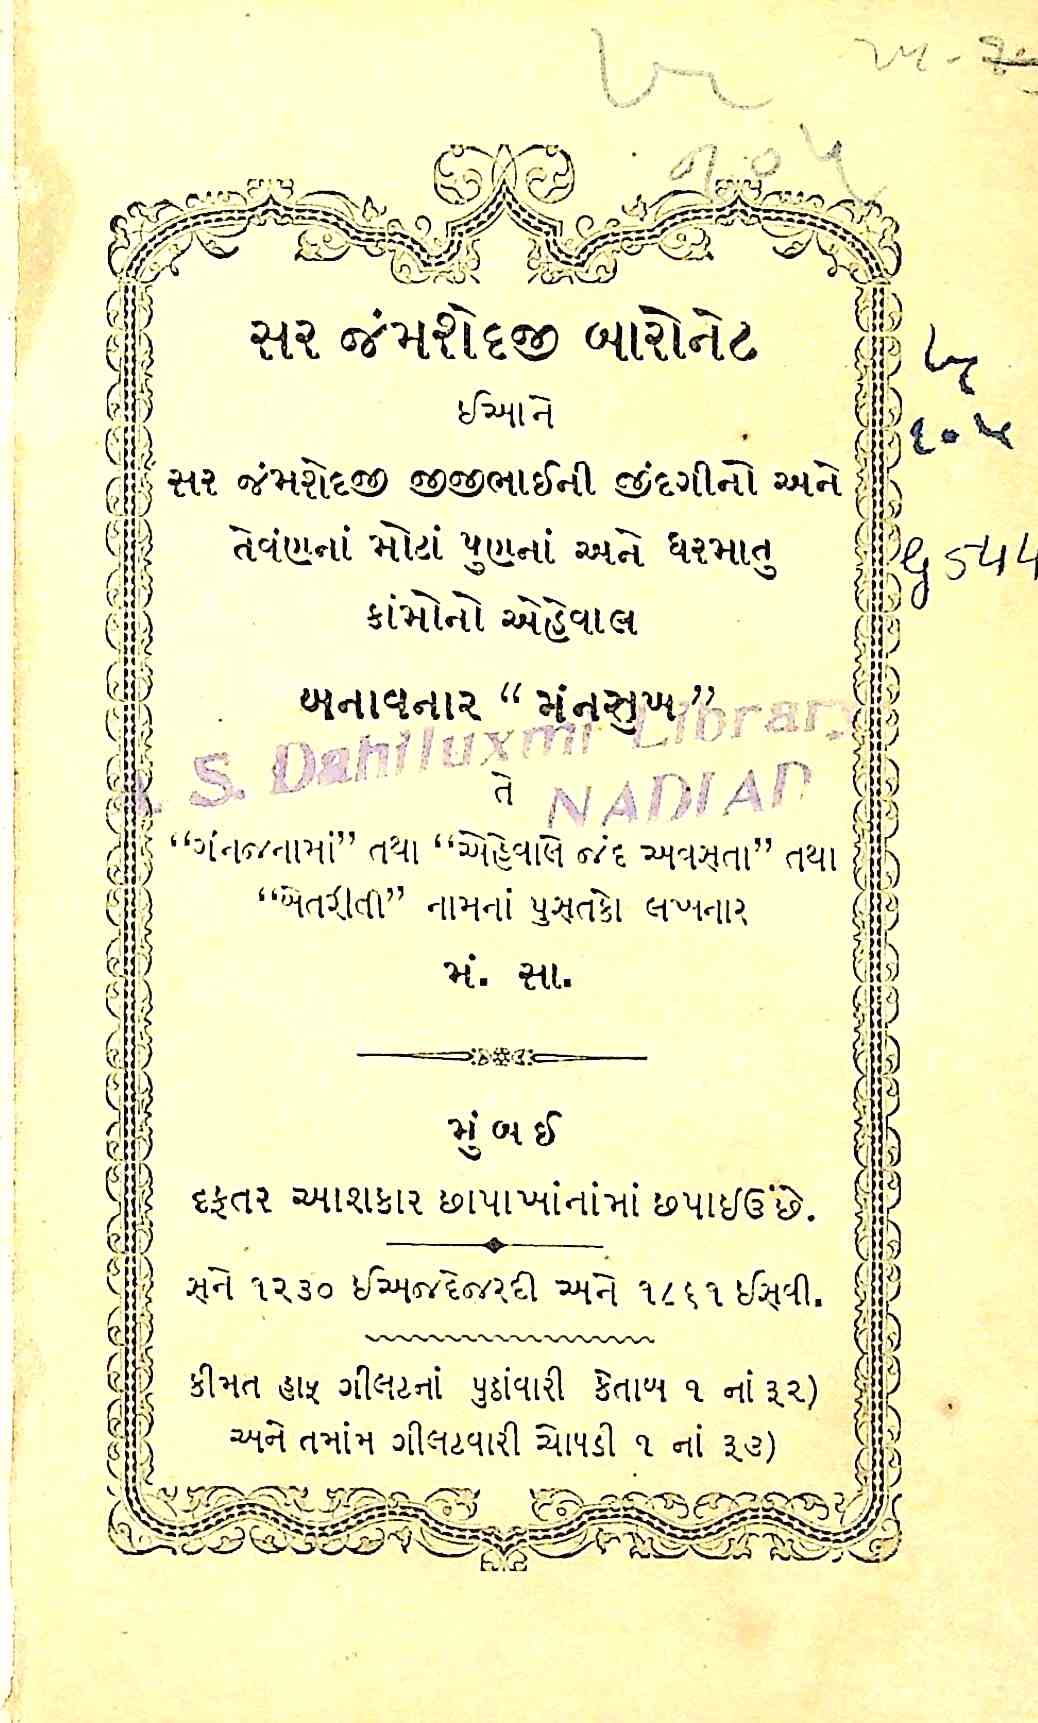 સર જંમશેદજી બારોનેટ
ઈઆને
સર જંમશેદજી જીજીભાઈની જીંદગીનો અને
તેવંણનાં મોટાં પુણનાં અને ધરમાતુ
કાંમોનો એહેવાલ
બનાવનાર “મંનસુખ”
S. Dahiluxmi Library
NADIAD
તે
“ગંનજનામાં” તથા “એહેવાલે જંદ અવસતા” તથા
“ખેતરીતી” નામનાં પુસતકો લખનાર
મં. સા.
મુંબઈ
દફતર આશકાર છાપાખાંનાંમાં છપાઈઉંછે.
સને ૧૨૩૦ ઈઅજદેજરદી અને ૧૮૬૧ ઈસવી.
કીમત હાફ ગીલટનાં પુઠાંવારી કેતાબ ૧ નાં રૂ૨)
અને તમાંમ ગીલટવારી ચોપડી ૧ નાં રૂ૩)
૧૦૫